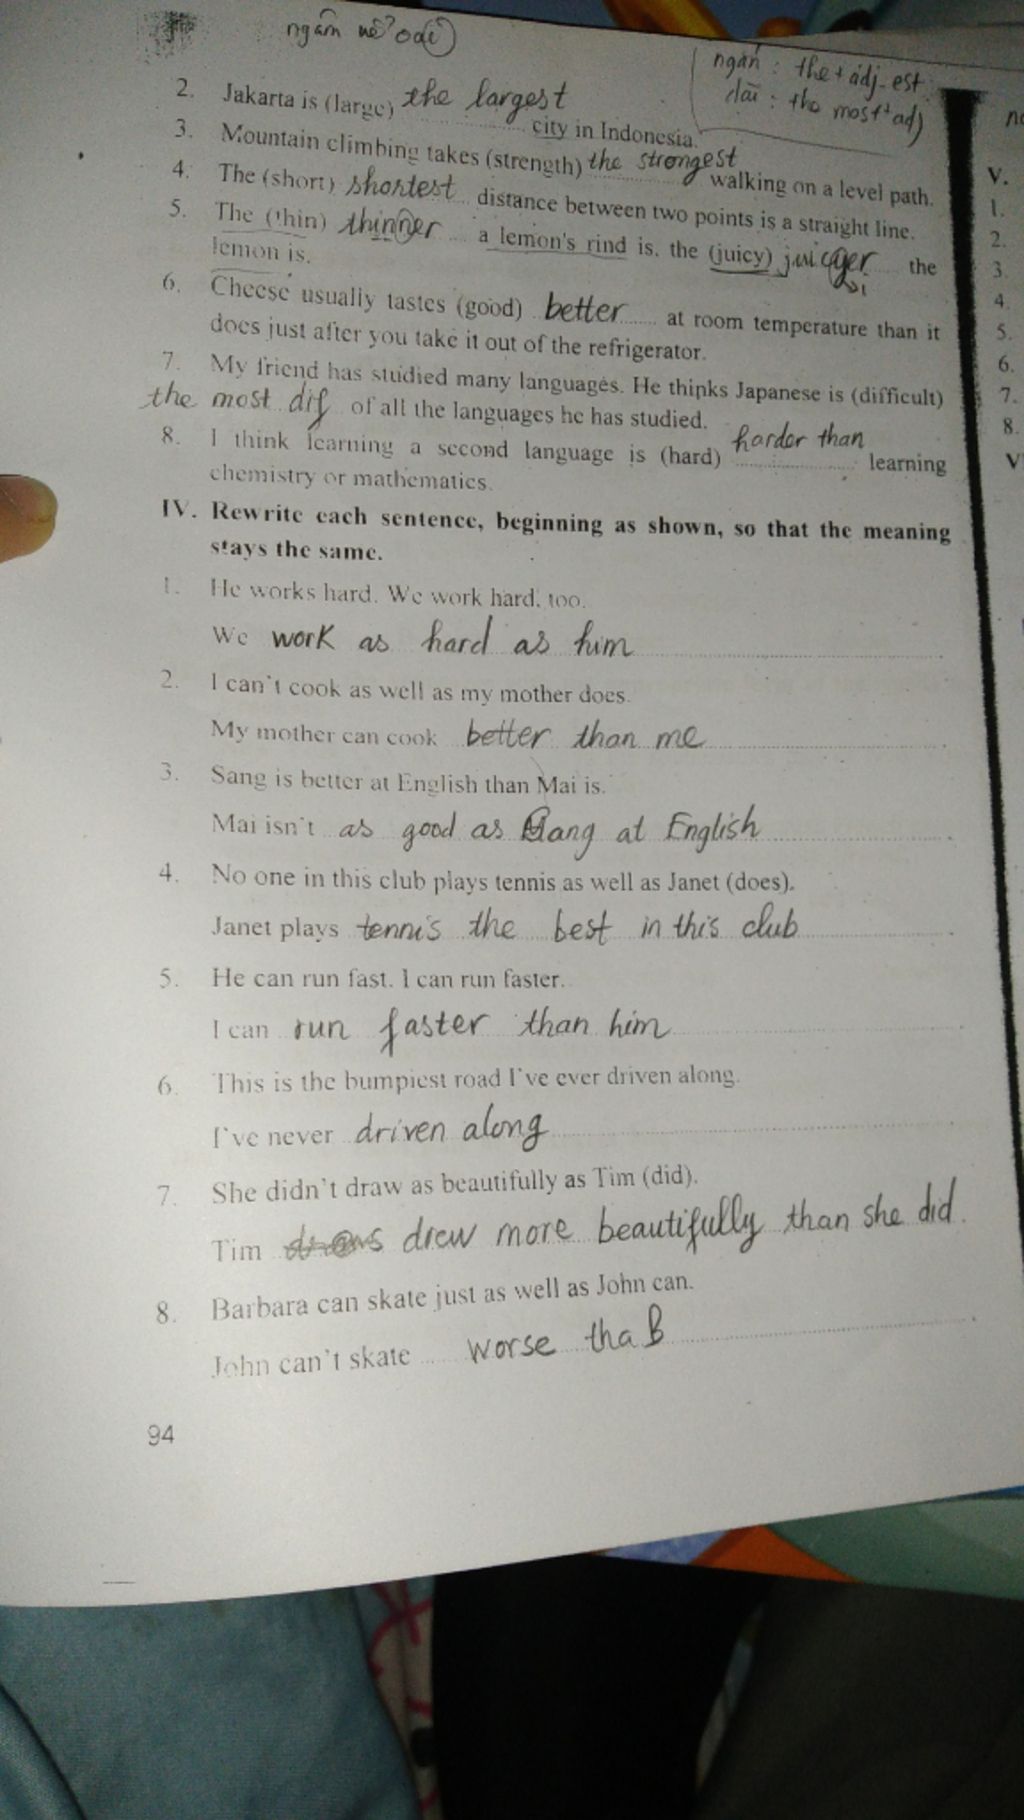 ngắn
ngắn : the + adj-est
dài : the most + adj
2. Jakarta is (large) the largest city in Indonesia.
3. Mountain climbing takes (strength) the strongest walking on a level path.
4. The (short) shortest distance between two points is a straight line.
5. The (thin) thinner a lemon's rind is, the (juicy) the
lemon is.
6. Cheese usually tastes (good) better at room temperature than it
does just after you take it out of the refrigerator.
7. My friend has studied many languages. He thinks Japanese is (difficult)
the most dif of all the languages he has studied.
8. I think learning a second language is (hard) harder than learning
chemistry or mathematics.
IV. Rewrite each sentence, beginning as shown, so that the meaning
stays the same.
1. He works hard. We work hard, too.
We work as hard as him
2. I can't cook as well as my mother does.
My mother can cook better than me
3. Sang is better at English than Mai is.
Mai isn't as good as Sang at English
4. No one in this club plays tennis as well as Janet (does).
Janet plays tennis the best in this club
5. He can run fast. I can run faster.
I can run faster than him
6. This is the bumpiest road I've ever driven along.
I've never driven along
7. She didn't draw as beautifully as Tim (did).
Tim drew more beautifully than she did.
8. Barbara can skate just as well as John can.
John can't skate worse tha B
94
V.
1.
2.
3.
4.
5.
6.
7.
8.
V